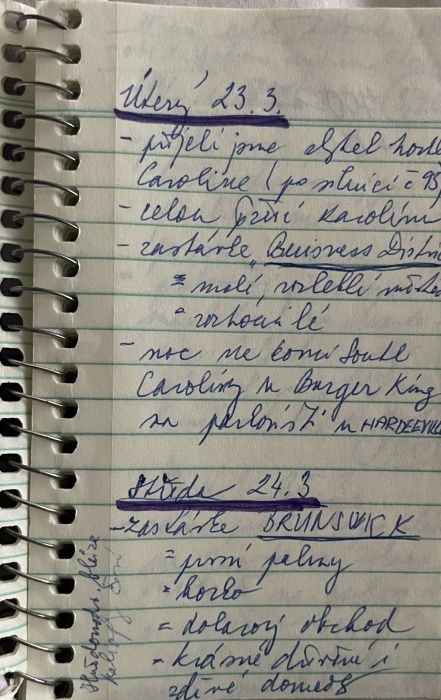 Úterý 23.3.
- přijeli jsme
Caroline (po silnici č 95
- celou Jižní Karolínu
- zastávka „Buisness Distri
= malé, rozlehlé měste
= rozházelé
- noc na konci South
Carolíny u Burger King
na parkovišti u HARDEEVILL
Středa 24.3
- zastávka BRUNSWICK
= první palmy
= horko
= dolarový obchod
- krásné dřevěné i
zděné domečk